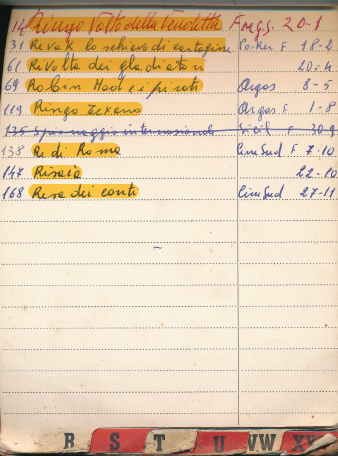 14 Ringo Volto della Vendetta F.M.G.S. 20-1
31 Revak lo schiavo di cartagine Po-Ker F 18-2
61 Rivolta dei gladiatori 20-4
69 Robin Hood e i pirati Argos 8-5
119 Ringo Texano Argos F. 1-8
135 Spionaggio internazionale Sicil F 30-9
138 Re di Roma CineSud F 7-10
147 Risaia 22-10
168 Resa dei conti CineSud 27-11
R S T U VW XY